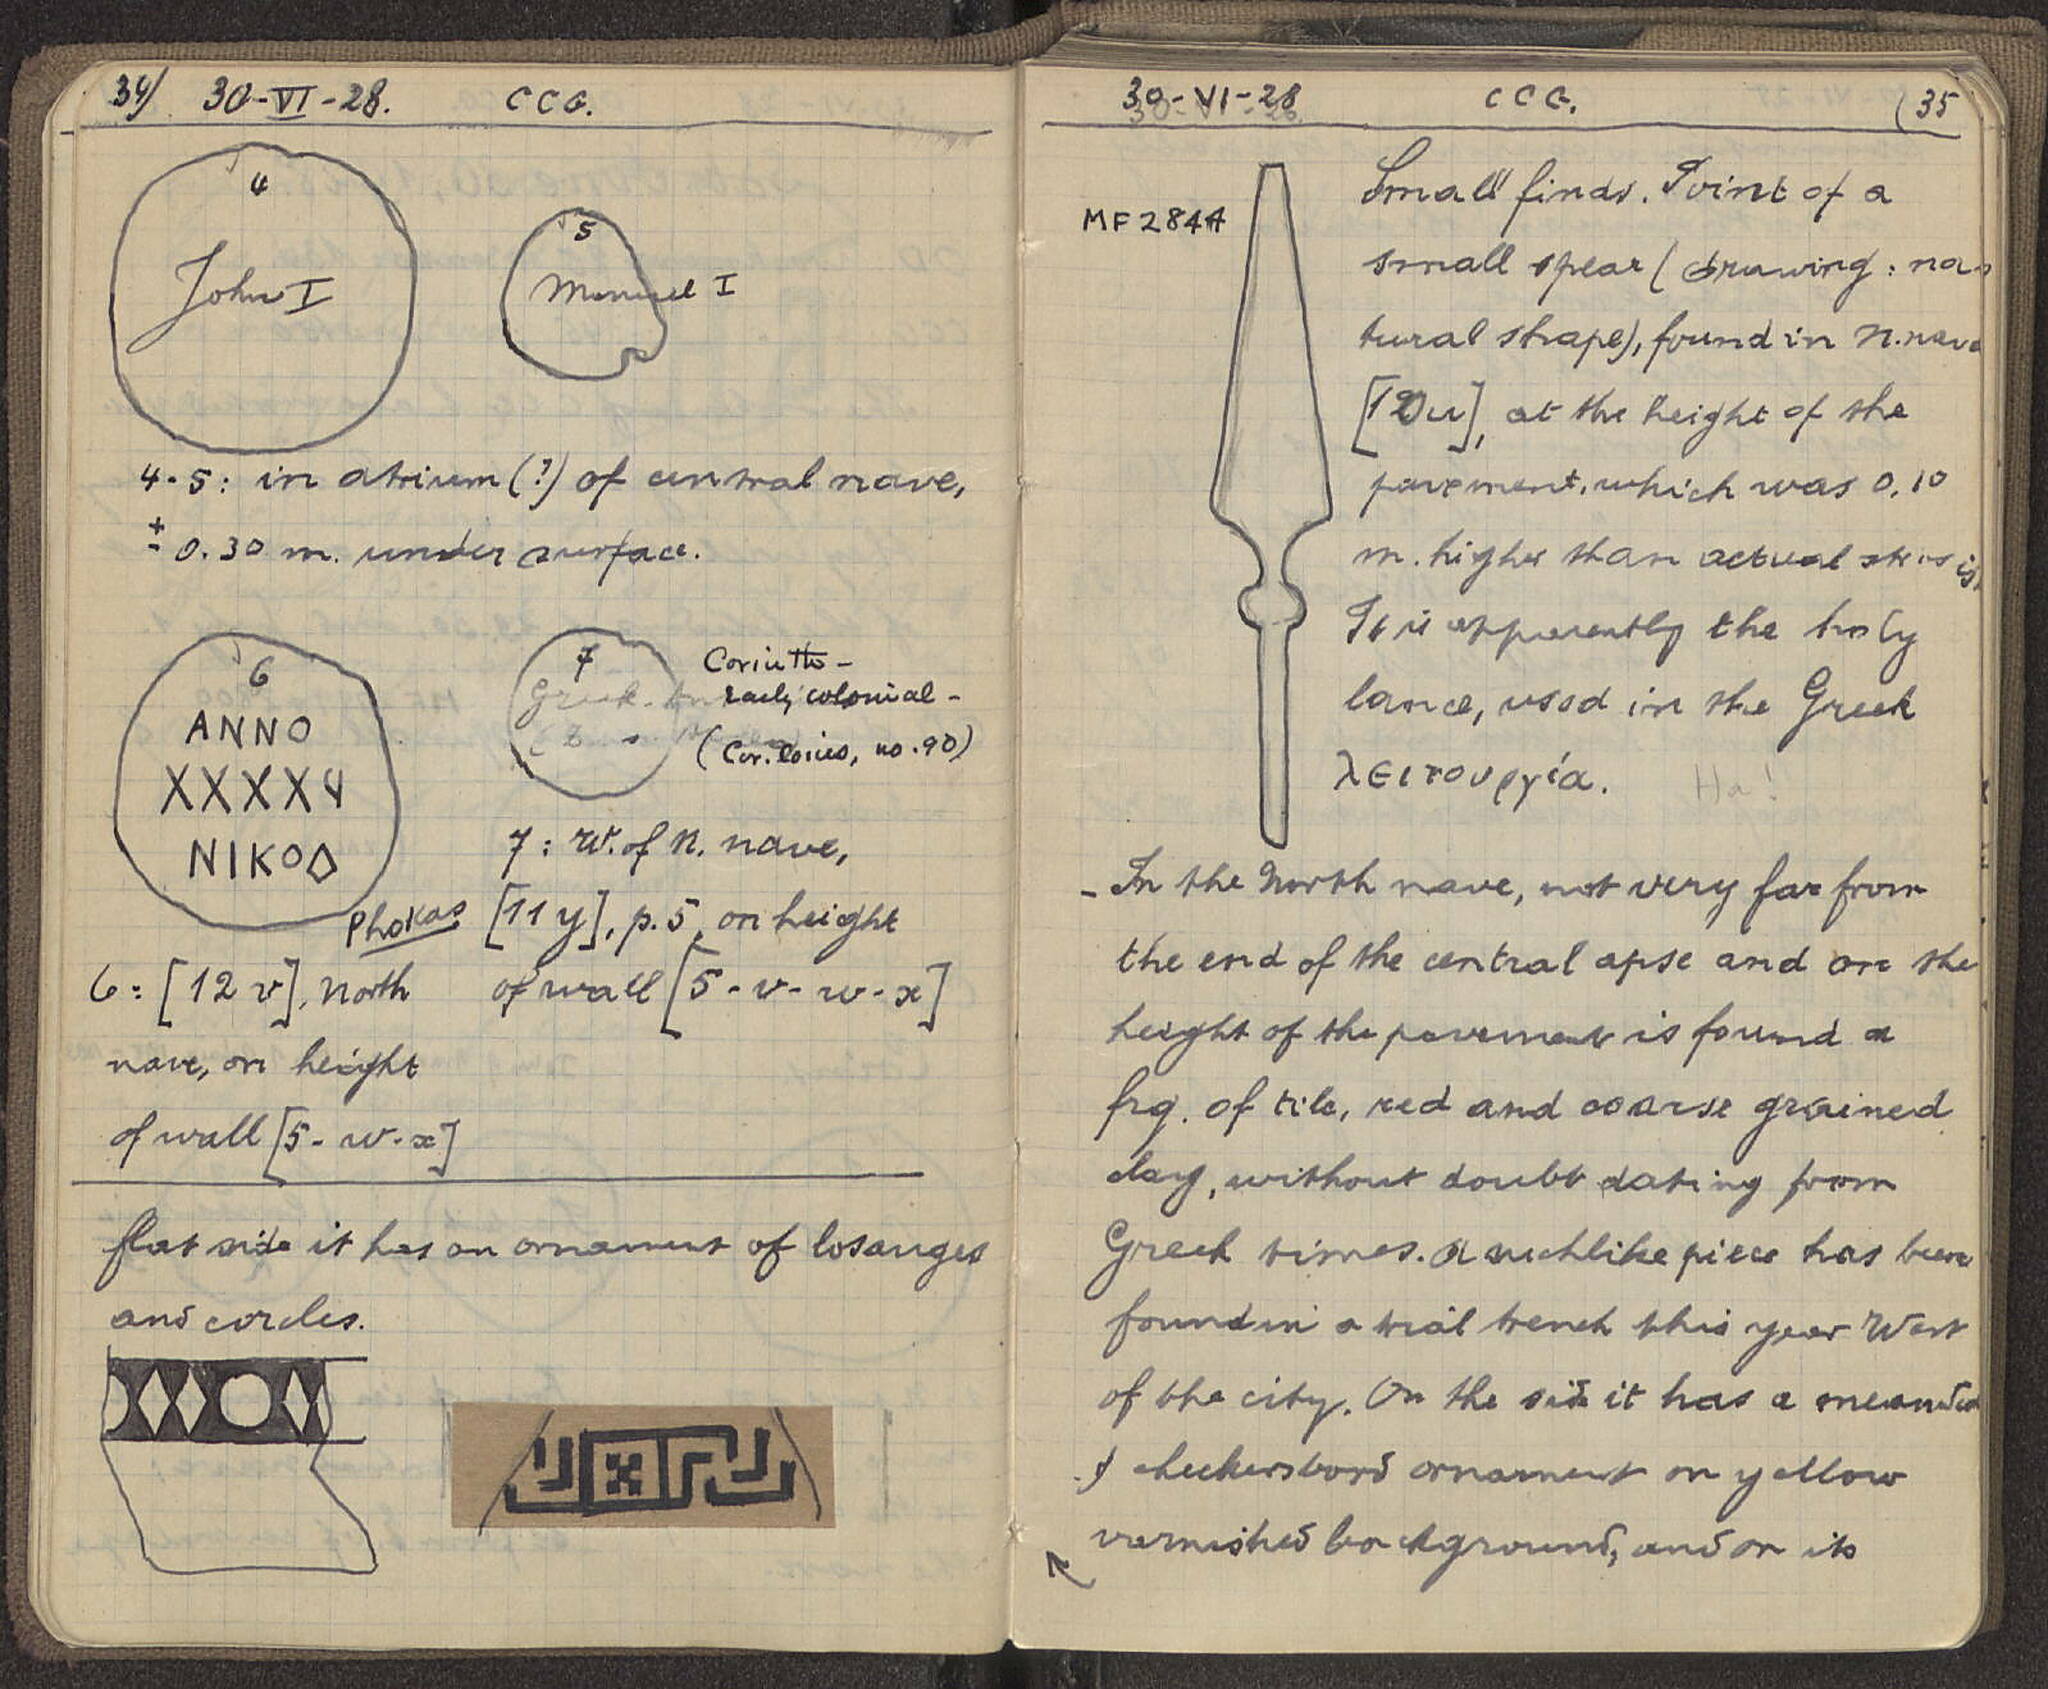 34) 30-VI-28. CCG.
4
John I
5
Manuel I
4-5: in atrium (?) of central nave,
± 0.30 m. under surface.
6
ANNO
XXXX4
NIKO◊
Phokas
6: [12 v], North
nave, on height
of wall [5-w-x]
7
Greek
Corinth-
early colonial-
(Cor. Coins, no. 90)
7: W. of N. nave,
[11 y], p. 5, on height
of wall [5-v-w-x]
flat side it has an ornament of losanges
and circles.
30-VI-28 CCG. (35
MF2844
Small finds. Point of a
small spear (drawing: na-
tural shape), found in N. nave
[12u], at the height of the
pavement, which was 0,10
m. higher than actual
It is apparently the holy
lance, used in the Greek
λειτουργία. Ha!
- In the North nave, not very far from
the end of the central apse and on the
height of the pavement is found a
frg. of tile, red and coarse grained
clay, without doubt dating from
Greek times. A suchlike piece has been
found in a trial trench this year West
of the city. On the side it has a meander
checkersbord ornament on yellow
varnished background, and on its